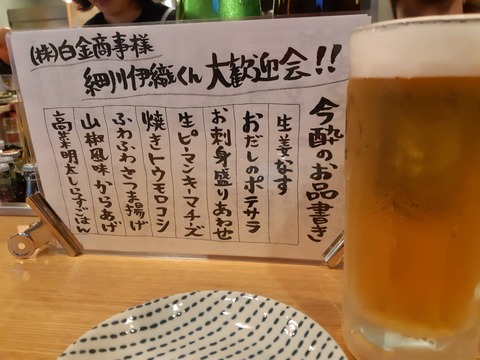 (株)白金商事様
細川伊織くん 大歓迎会!!
今酔のお品書き
生姜なす
おだしのポテサラ
お刺身盛りあわせ
生ピーマンキーマチーズ
焼きトウモロコシ
ふわふわさつま揚げ
山椒風味からあげ
高菜明太しらすごはん